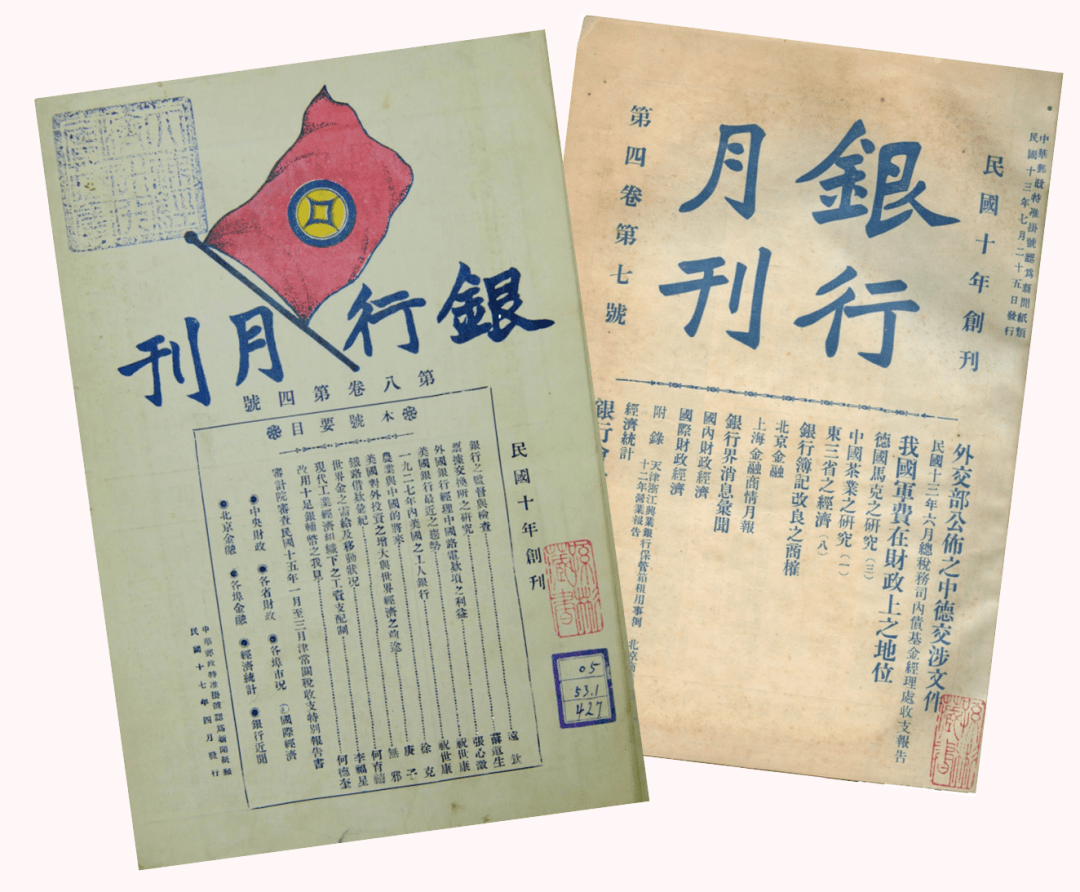 銀行月刊
第八卷第四號
民國十年創刊
本號要目
銀行之監督與檢查
遠欽
票據交換所之研究
蘇道生
外國銀行經理中國路電款項之利益
張心澂
美國銀行最近之趨勢
祝世康
一九二七年內美國之工人銀行
祝世康
農業與中國的將來
徐克
美國對外投資之增大與世界經濟之前途
庚子
鐵路借款彙紀
無邪
世界金之需給及移動狀況
何育禧
現代工業經濟組織下之工資支配制
李福星
改用十足銀輔幣之我見
何德奎
審計院審查民國十五年一月至三月津常關稅收支特別報告書
中央財政
各省財政
各埠市況
國際經濟
北京金融
各埠金融
經濟統計
銀行近聞
中華郵政特准掛號認為新聞紙類
民國十七年四月發行
05
53.1
427
中華郵政特准掛號認為新聞紙類
民國十三年七月二十五日發行
民國十年創刊
銀行
月刊
第四卷第七號
外交部公佈之中德交涉文件
民國十三年六月總稅務司內債基金經理處收支報告
我國軍費在財政上之地位
德國馬克之研究(三)
中國茶業之研究(一)
東三省之經濟(八)
銀行簿記改良之商榷
北京金融
上海金融商情月報
銀行界消息彙聞
國內財政經濟
國際財政經濟
附錄
天津浙江興業銀行保管箱租用事例
十二年營業報告
經濟統計